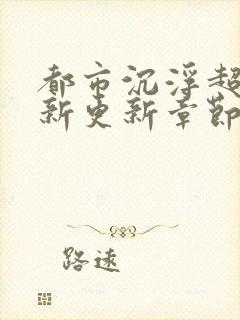 都市沉浮超
新更新章節
路遠